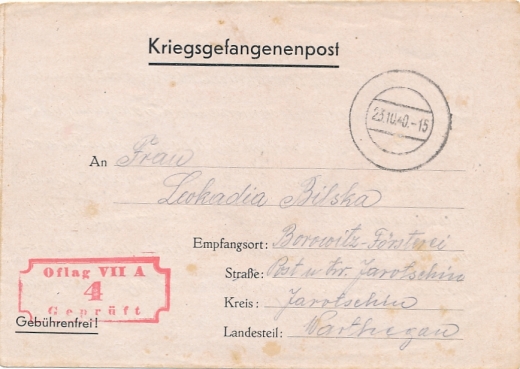 Kriegsgefangenenpost
23.10.40.-15
An Frau
Leokadia Bilska
Empfangsort: Borowitz-Försterei
Straße: Post u. kr. Jarotschin
Kreis: Jarotschin
Landesteil: Warthegau
Oflag VII A
4
Geprüft
Gebührenfrei!